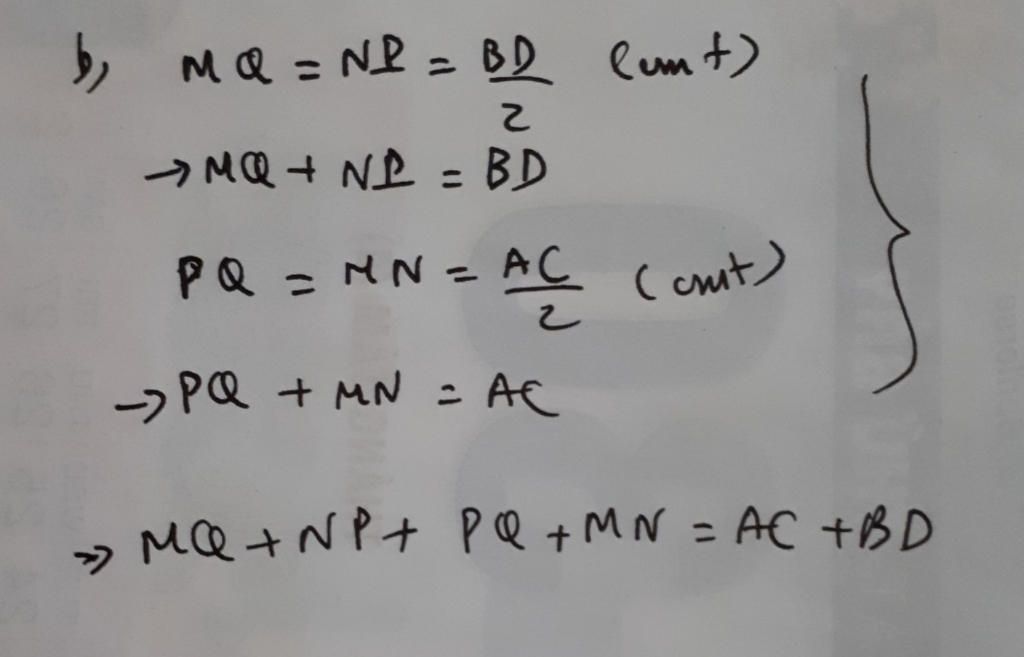 b, MQ = NP = BD/2 (cmt)
→ MQ + NP = BD
PQ = MN = AC/2 (cmt)
→ PQ + MN = AC
=> MQ + NP + PQ + MN = AC + BD